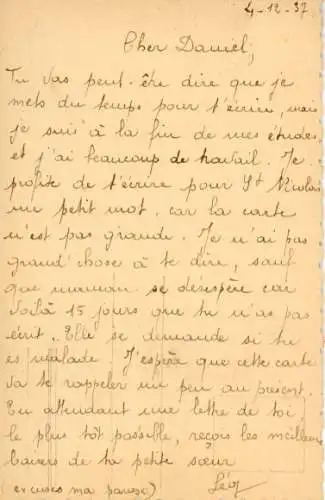 4-12-37
Cher Daniel,
Tu vas peut-être dire que je
mets du temps pour t'écrire, mais
je suis à la fin de mes études,
et j'ai beaucoup de travail. Je
profite de t'écrire pour St Nicolas
un petit mot, car la carte
n'est pas grande. Je n'ai pas
grand'chose à te dire, sauf
que maman se désespère car
voilà 15 jours que tu n'as pas
écrit. Elle se demande si tu
es malade. J'espère que cette carte
va te rappeler un peu au présent.
En attendant une lettre de toi
le plus tôt possible, reçois les meilleurs
baisers de ta petite sœur
(excuses ma)